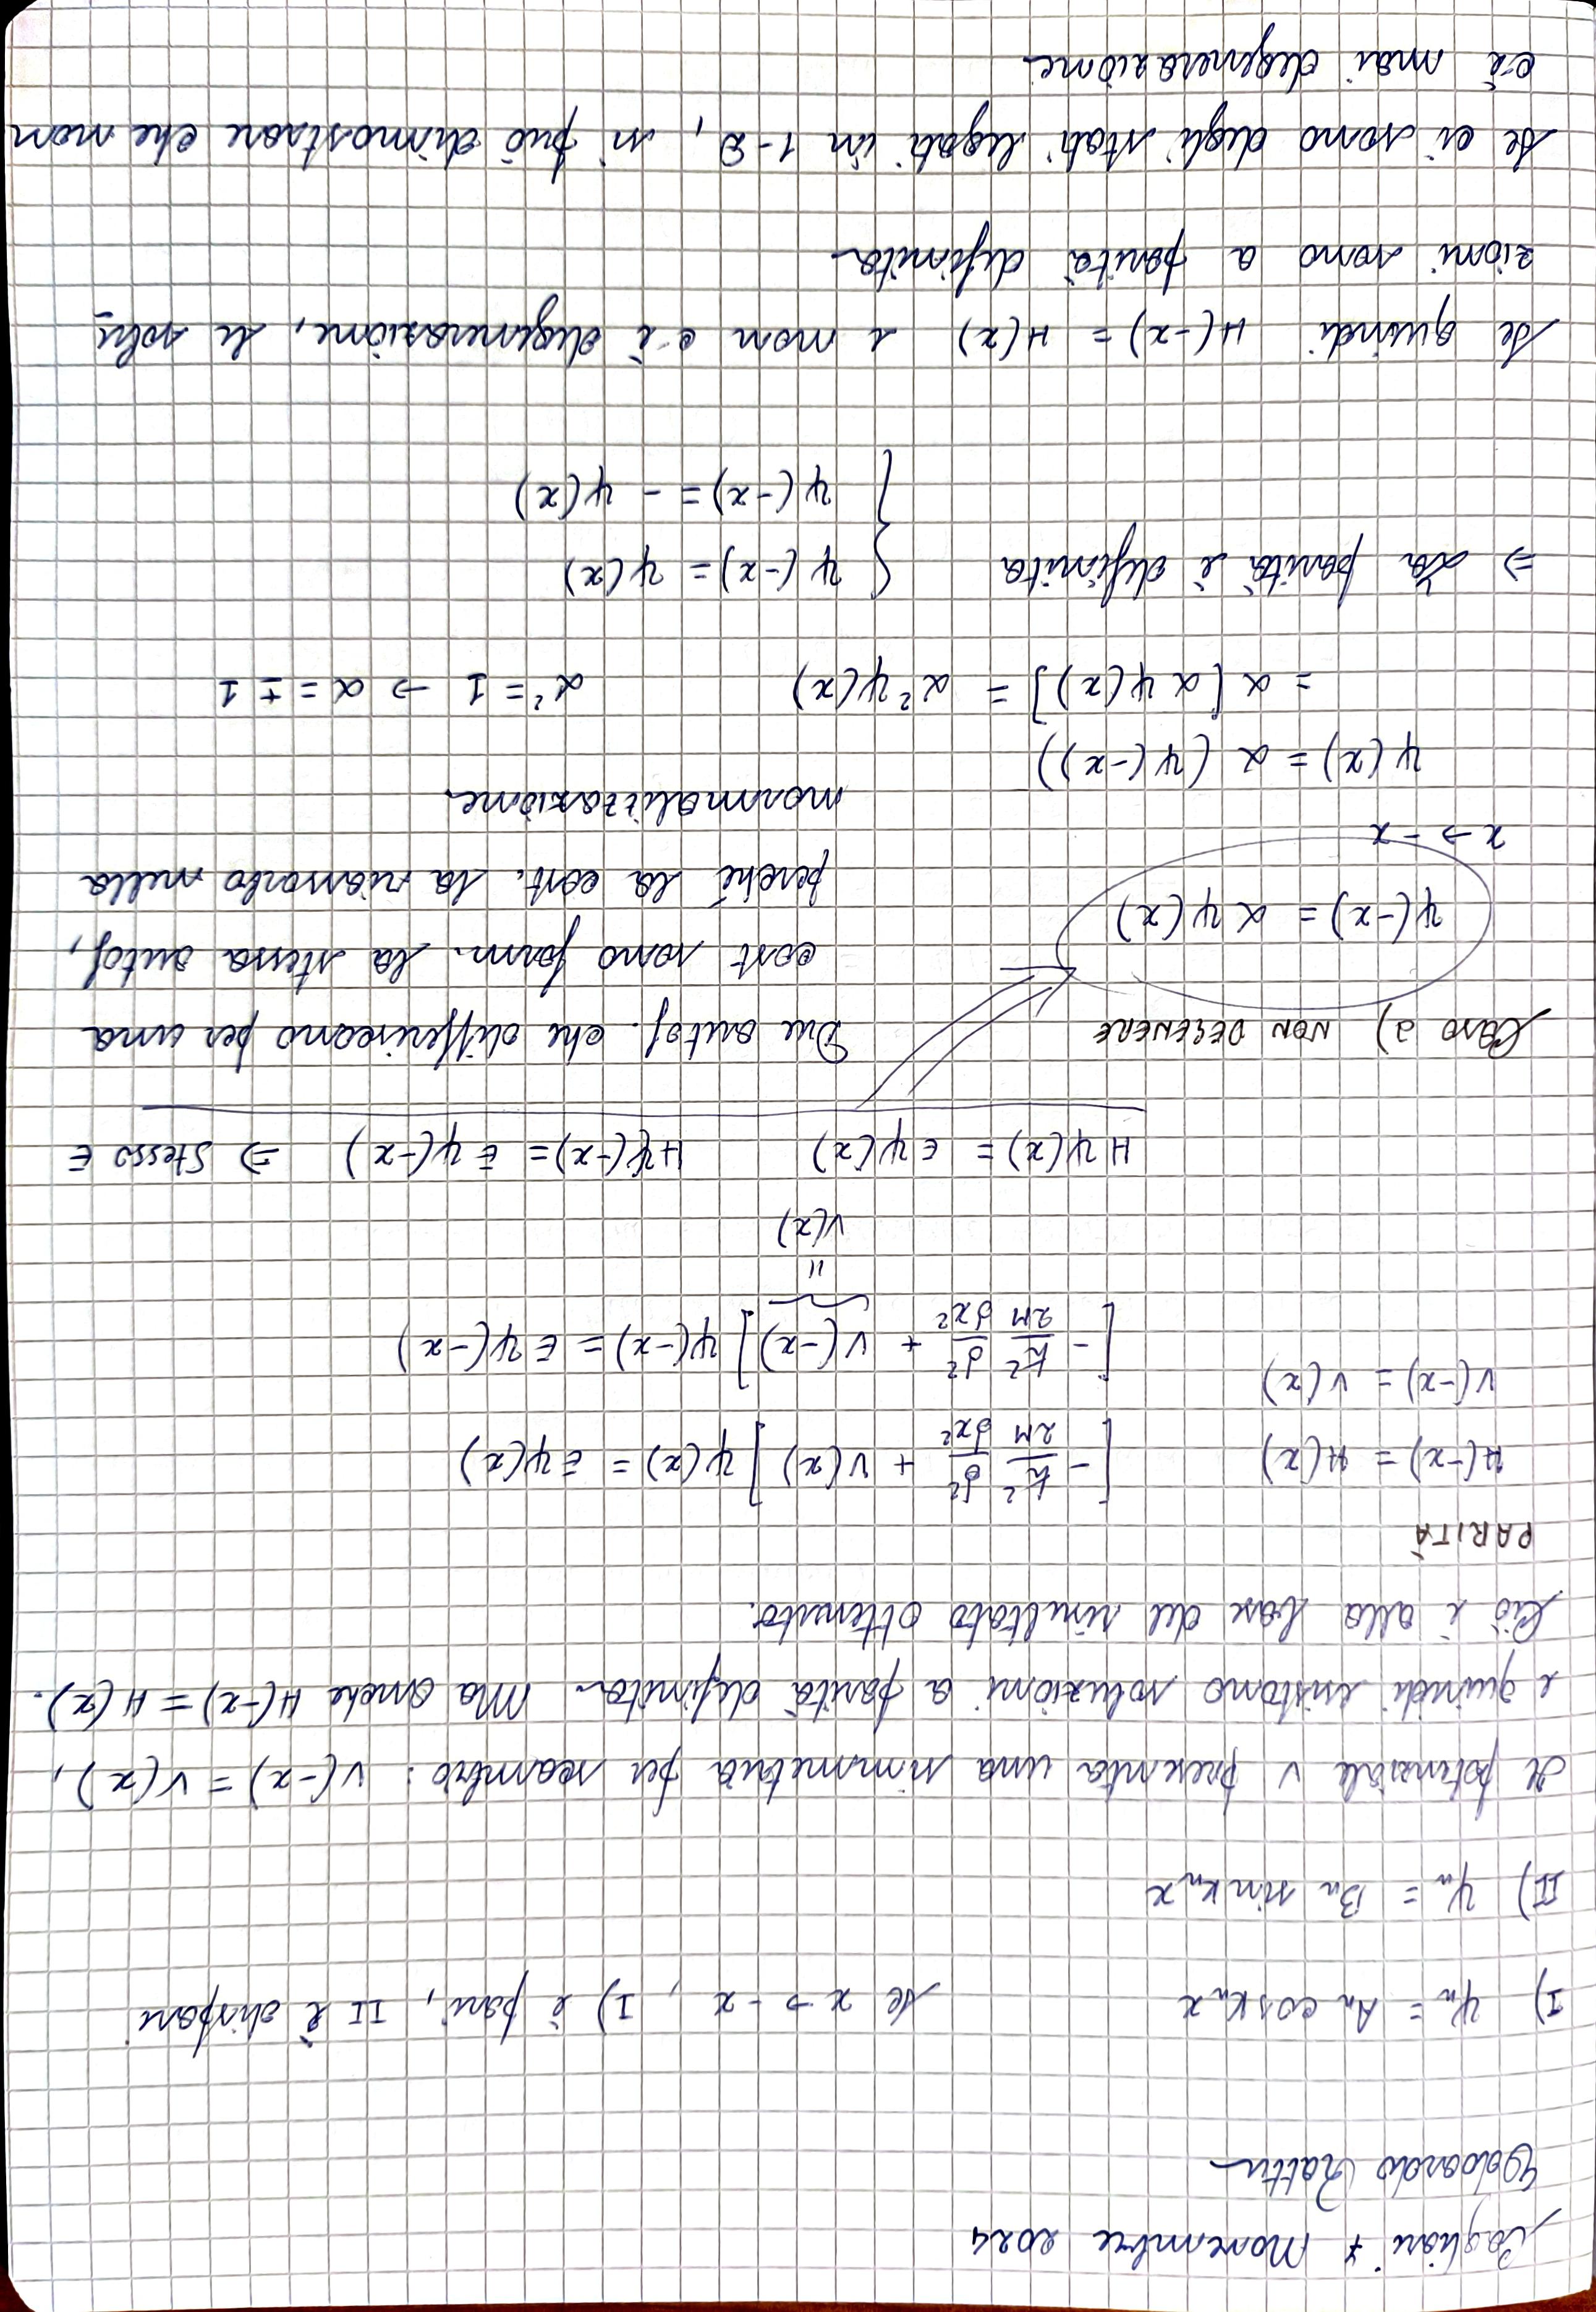 Cagliari, 7 Novembre 2024
Edoardo
I) ψₙ = Aₙ cos kₙ x Se x → -x, I) è pari, II è dispari
II) ψₙ = Bₙ sin kₙ x
Il potenziale V presenta una simmetria per scambio: V(-x) = V(x),
e quindi esistono soluzioni a parità definita. Ma anche H(-x) = H(x).
Ciò è alla base del risultato ottenuto.
PARITÀ
H(-x) = H(x) [-ħ²/2M ∂²/∂x² + V(x)] ψ(x) = E ψ(x)
V(-x) = V(x) [-ħ²/2M ∂²/∂x² + V(-x)] ψ(-x) = E ψ(-x)
=
V(x)
H ψ(x) = E ψ(x) H ψ(-x) = E ψ(-x) ⇒ Stesso E
Caso a) NON DEGENERE Due autof. che differiscono per una
ψ(-x) = α ψ(x) cost sono fam. la stessa autof,
x → -x perché la cost. la riassorbo nella
normalizzazione.
ψ(x) = α (ψ(-x))
= α [α ψ(x)] = α² ψ(x) α² = 1 → α = ± 1
⇒ La parità è definita { ψ(-x) = ψ(x)
ψ(-x) = - ψ(x)
Se quindi H(-x) = H(x) e non c'è degenerazione, le solu
zioni sono a parità definita.
Se ci sono degli stati legati in 1-D, si può dimostrare che non
c'è mai degenerazione.